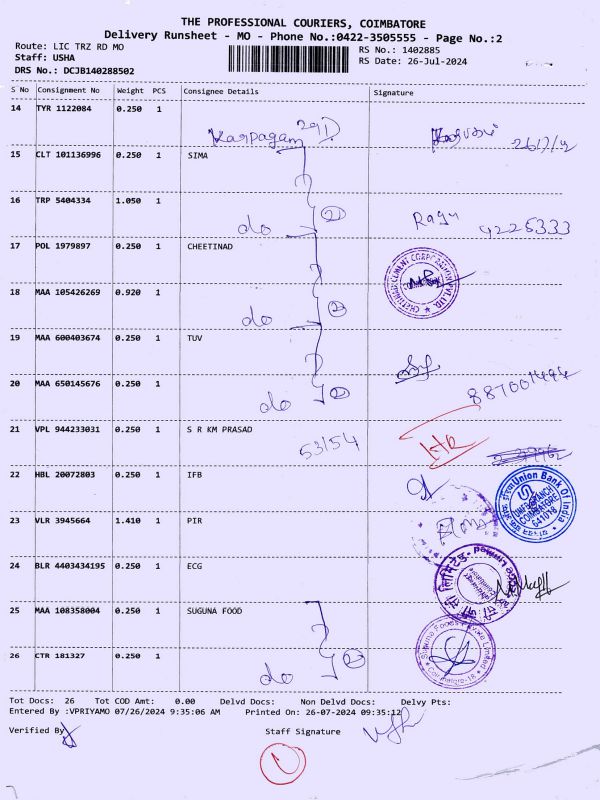 THE PROFESSIONAL COURIERS, COIMBATORE
Delivery Runsheet - MO - Phone No.:0422-3505555 - Page No.:2
Route: LIC TRZ RD MO
Staff: USHA
DRS No.: DCJB140288502
RS No.: 1402885
RS Date: 26-Jul-2024
S No Consignment No Weight PCS Consignee Details Signature
14 TYR 1122084 0.250 1
Karpagam
15 CLT 101136996 0.250 1 SIMA
16 TRP 5404334 1.050 1
do 2 Ragu 4225333
17 POL 1979897 0.250 1 CHEETINAD
18 MAA 105426269 0.920 1
do 2
19 MAA 600403674 0.250 1 TUV
20 MAA 650145676 0.250 1
do 2
21 VPL 944233031 0.250 1 S R KM PRASAD
53154
22 HBL 20072803 0.250 1 IFB
Union Bank Of India
COIMBATORE
641018
23 VLR 3945664 1.410 1 PIR
24 BLR 4403434195 0.250 1 ECG
25 MAA 108358004 0.250 1 SUGUNA FOOD
Suguna Foods Private Limited
Coimbatore-18
26 CTR 181327 0.250 1
do 2
Tot Docs: 26 Tot COD Amt: 0.00 Delvd Docs: Non Delvd Docs: Delvy Pts:
Entered By :VPRIYAMO 07/26/2024 9:35:06 AM Printed On: 26-07-2024 09:35:12
Verified By Staff Signature